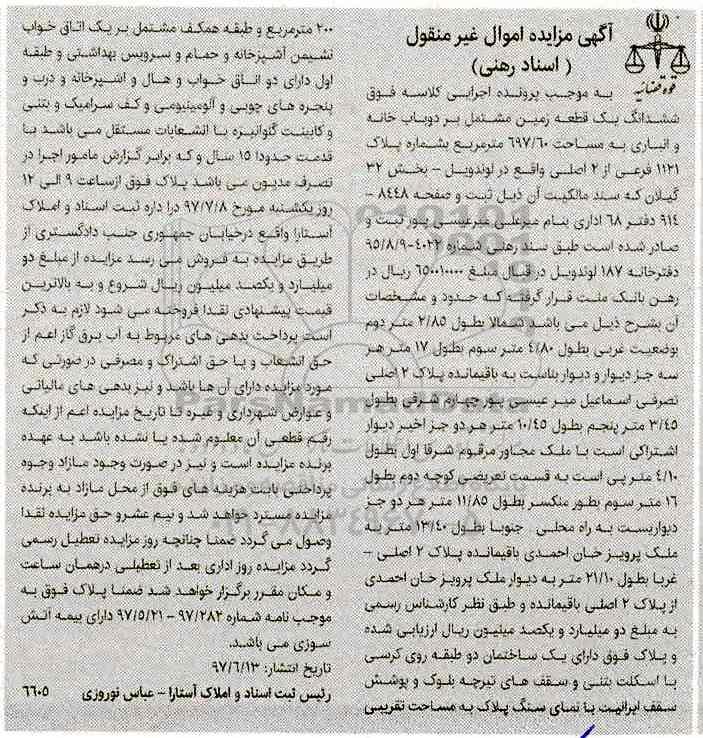 آگهی مزایده اموال غیر منقول
( اسناد رهنی)
قوه قضائیه
به موجب پرونده اجرایی کلاسه فوق
ششدانگ یک قطعه زمین مشتمل بر دوباب خانه
و انباری به مساحت ۶۹۷/۶۰ مترمربع بشماره پلاک
۱۱۲۱ فرعی از ۲ اصلی واقع در لوندویل – بخش ۳۲
گیلان که سند مالکیت آن ذیل ثبت و صفحه ۸۴۴۸ –
۹۱۴ دفتر ۶۸ اداری بنام میرعلی میرعیسی پور ثبت و
صادر شده است طبق سند رهنی شماره ۴۰۲۲-۹۵/۸/۹
دفترخانه ۱۸۷ لوندویل در قبال مبلغ ۶۵۰۰۱۰۰۰۰ ریال در
رهن بانک ملت قرار گرفته که حدود و مشخصات
آن بشرح ذیل می باشد شمالا بطول ۲/۸۵ متر دوم
بوضعیت غربی بطول ۴/۸۰ متر سوم بطول ۱۷ متر هر
سه جز دیوار و دیوار بلاست به باقیمانده پلاک ۲ اصلی
تصرفی اسماعیل میر عیسی پور چهارم شرقی بطول
۳/۴۵ متر پنجم بطول ۱۰/۴۵ متر هر دو جز اخیر دیوار
اشتراکی است با ملک مجاور مرقوم شرقا اول بطول
۴/۱۰ متر پی است به قسمت تعریضی کوچه دوم بطول
۱۶ متر سوم بطور منکسر بطول ۱۱/۸۵ متر هر دو جز
دیواریست به راه محلی . جنوبا بطول ۱۳/۴۰ متر به
ملک پرویز خان احمدی باقیمانده پلاک ۲ اصلی –
غربا بطول ۲۱/۱۰ متر به دیوار ملک پرویز خان احمدی
از پلاک ۲ اصلی باقیمانده و طبق نظر کارشناس رسمی
به مبلغ دو میلیارد و یکصد میلیون ریال ارزیابی شده
و پلاک فوق دارای یک ساختمان دو طبقه روی کرسی
با اسکلت بتنی و سقف های تیرچه بلوک و پوشش
سقف ایرانیت با نمای سنگ پلاک به مساحت تقریبی
۲۰۰ مترمربع و طبقه همکف مشتمل بر یک اتاق خواب
نشیمن آشپزخانه و حمام و سرویس بهداشتی و طبقه
اول دارای دو اتاق خواب و هال و اشپزخانه و درب و
پنجره های چوبی و آلومینیومی و کف سرامیک و بتنی
و کابینت گلوانیزه با انشعابات مستقل می باشد با
قدمت حدودا ۱۵ سال و که برابر گزارش مامور اجرا در
تصرف مدیون می باشد پلاک فوق ازساعت ۹ الی ۱۲
روز یکشنبه مورخ ۹۷/۷/۸ درا داره ثبت اسناد و املاک
آستارا واقع درخیابان جمهوری جنب دادگستری از
طریق مزایده به فروش می رسد مزایده از مبلغ دو
میلیارد و یکصد میلیون ریال شروع و به بالاترین
قیمت پیشنهادی نقدا فروخته می شود لازم به ذکر
است پرداخت بدهی های مربوط به آب برق گاز اعم از
حق انشعاب و یا حق اشتراک و مصرفی در صورتی که
مورد مزایده دارای آن ها باشد و نیز بدهی های مالیاتی
و عوارض شهرداری و غیره تا تاریخ مزایده اعم از اینکه
رقم قطعی آن معلوم شده یا نشده باشد به عهده
برنده مزایده است و نیز در صورت وجود مازاد وجوه
پرداختی بابت هزینه های فوق از محل مازاد به برنده
مزایده مسترد خواهد شد و نیم عشرو حق مزایده نقدا
وصول می گردد ضمنا چنانچه روز مزایده تعطیل رسمی
گردد مزایده روز اداری بعد از تعطیلی درهمان ساعت
و مکان مقرر برگزار خواهد شد ضمنا پلاک فوق به
موجب نامه شماره ۹۷/۲۸۲ – ۹۷/۵/۲۱ دارای بیمه آتش
سوزی می باشد.
تاریخ انتشار: ۹۷/۶/۱۳
رئیس ثبت اسناد و املاک آستارا – عباس نوروزی ۶۶۰۵
ParsNamadData